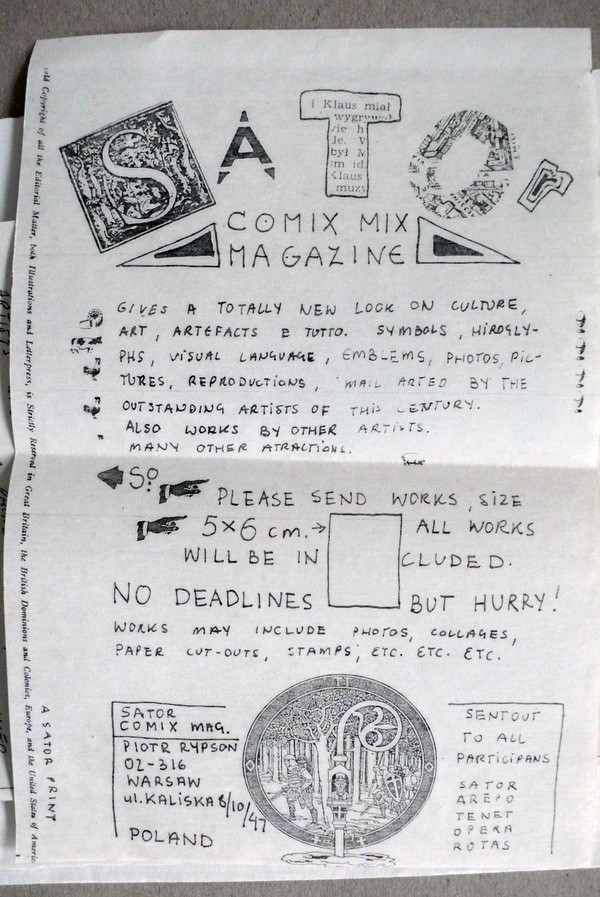 SATOR
i Klaus miał
wygrywał
COMIX MIX
MAGAZINE
GIVES A TOTALLY NEW LOOK ON CULTURE,
ART, ARTEFACTS E TUTTO. SYMBOLS, HIROGLY-
PHS, VISUAL LANGUAGE, EMBLEMS, PHOTOS, PIC-
TURES, REPRODUCTIONS, MAIL ARTED BY THE
OUTSTANDING ARTISTS OF THIS CENTURY.
ALSO WORKS BY OTHER ARTISTS.
MANY OTHER ATRACTIONS.
SO
PLEASE SEND WORKS, SIZE
5×6 cm.→ ALL WORKS
WILL BE IN CLUDED.
NO DEADLINES BUT HURRY!
WORKS MAY INCLUDE PHOTOS, COLLAGES,
PAPER CUT-OUTS, STAMPS, ETC. ETC. ETC.
SATOR
COMIX MAG.
PIOTR RYPSON
02-316
WARSAW
ul. KALISKA 8/10/47
POLAND
SENTOUT
TO ALL
PARTICIPANS
SATOR
AREPO
TENET
OPERA
ROTAS
Copyright of all the Editorial Matter, both Illustrations and Letterpress, is Strictly Reserved in Great Britain, the British Dominions and Colonies, Europe, and the United States of America
A SATOR PRINT